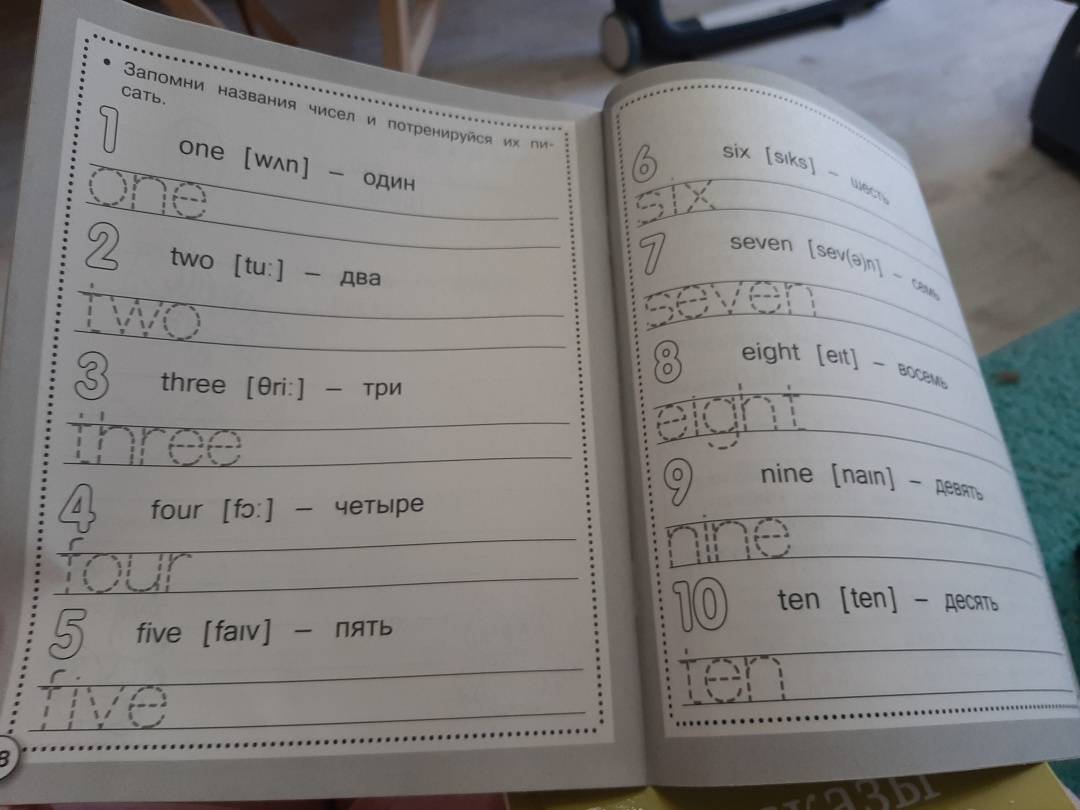 • Запомни названия чисел и потренируйся их пи-
сать.
1
one [wʌn] – один
one
2
two [tuː] – два
two
3
three [θriː] – три
three
4
four [fɔː] – четыре
four
5
five [faɪv] – пять
five
8
6
six [sɪks] – шесть
six
7
seven [sev(ə)n] – семь
seven
8
eight [eɪt] – восемь
eight
9
nine [naɪn] – девять
nine
10
ten [ten] – десять
ten